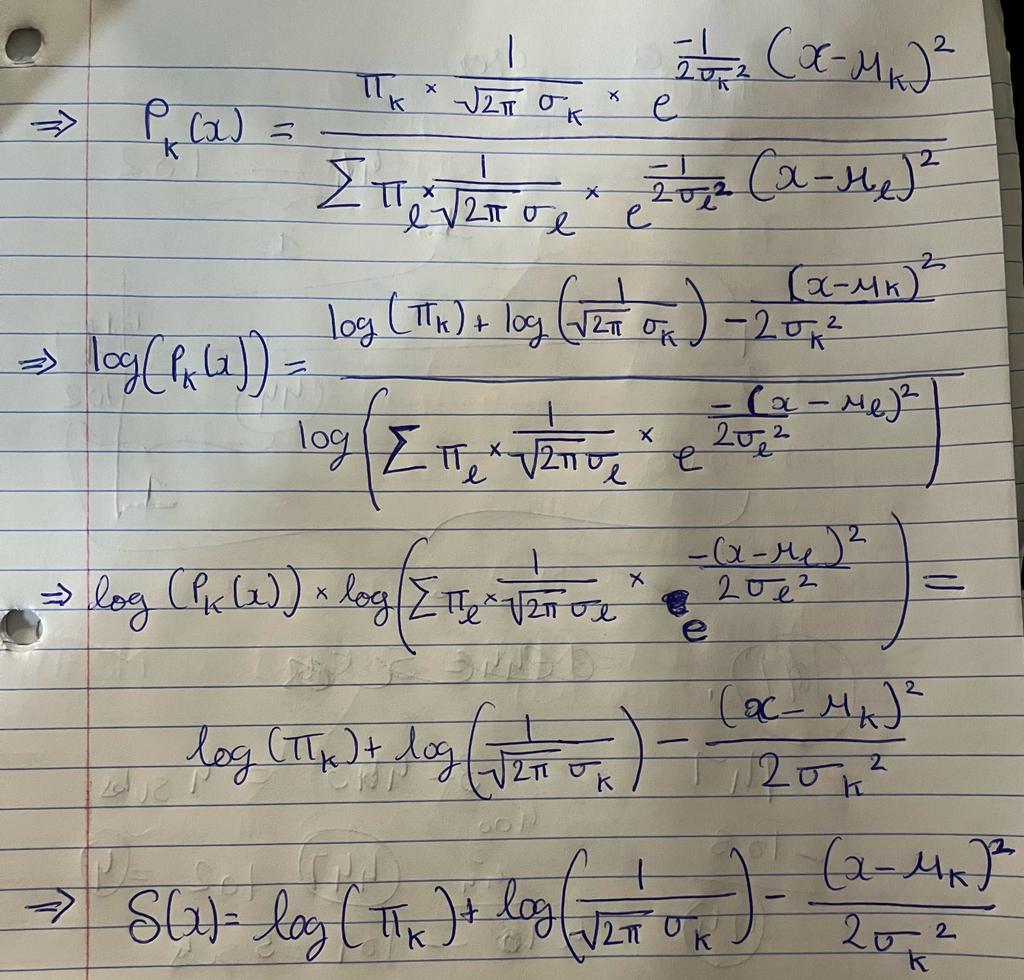 ⇒ P_k(x) = (π_k × 1/(√2π σ_k) × e^(-1/(2σ_k²) (x-μ_k)²)) / (Σ π_l × 1/(√2π σ_l) × e^(-1/(2σ_l²) (x-μ_l)²))
⇒ log(P_k(x)) = (log(π_k) + log(1/(√2π σ_k)) - (x-μ_k)²/(2σ_k²)) / log(Σ π_l × 1/(√2π σ_l) × e^(-(x-μ_l)²/(2σ_l²)))
⇒ log(P_k(x)) × log(Σ π_l × 1/(√2π σ_l) × e^(-(x-μ_l)²/(2σ_l²))) =
log(π_k) + log(1/(√2π σ_k)) - (x-μ_k)²/(2σ_k²)
⇒ δ(x) = log(π_k) + log(1/(√2π σ_k)) - (x-μ_k)²/(2σ_k²)